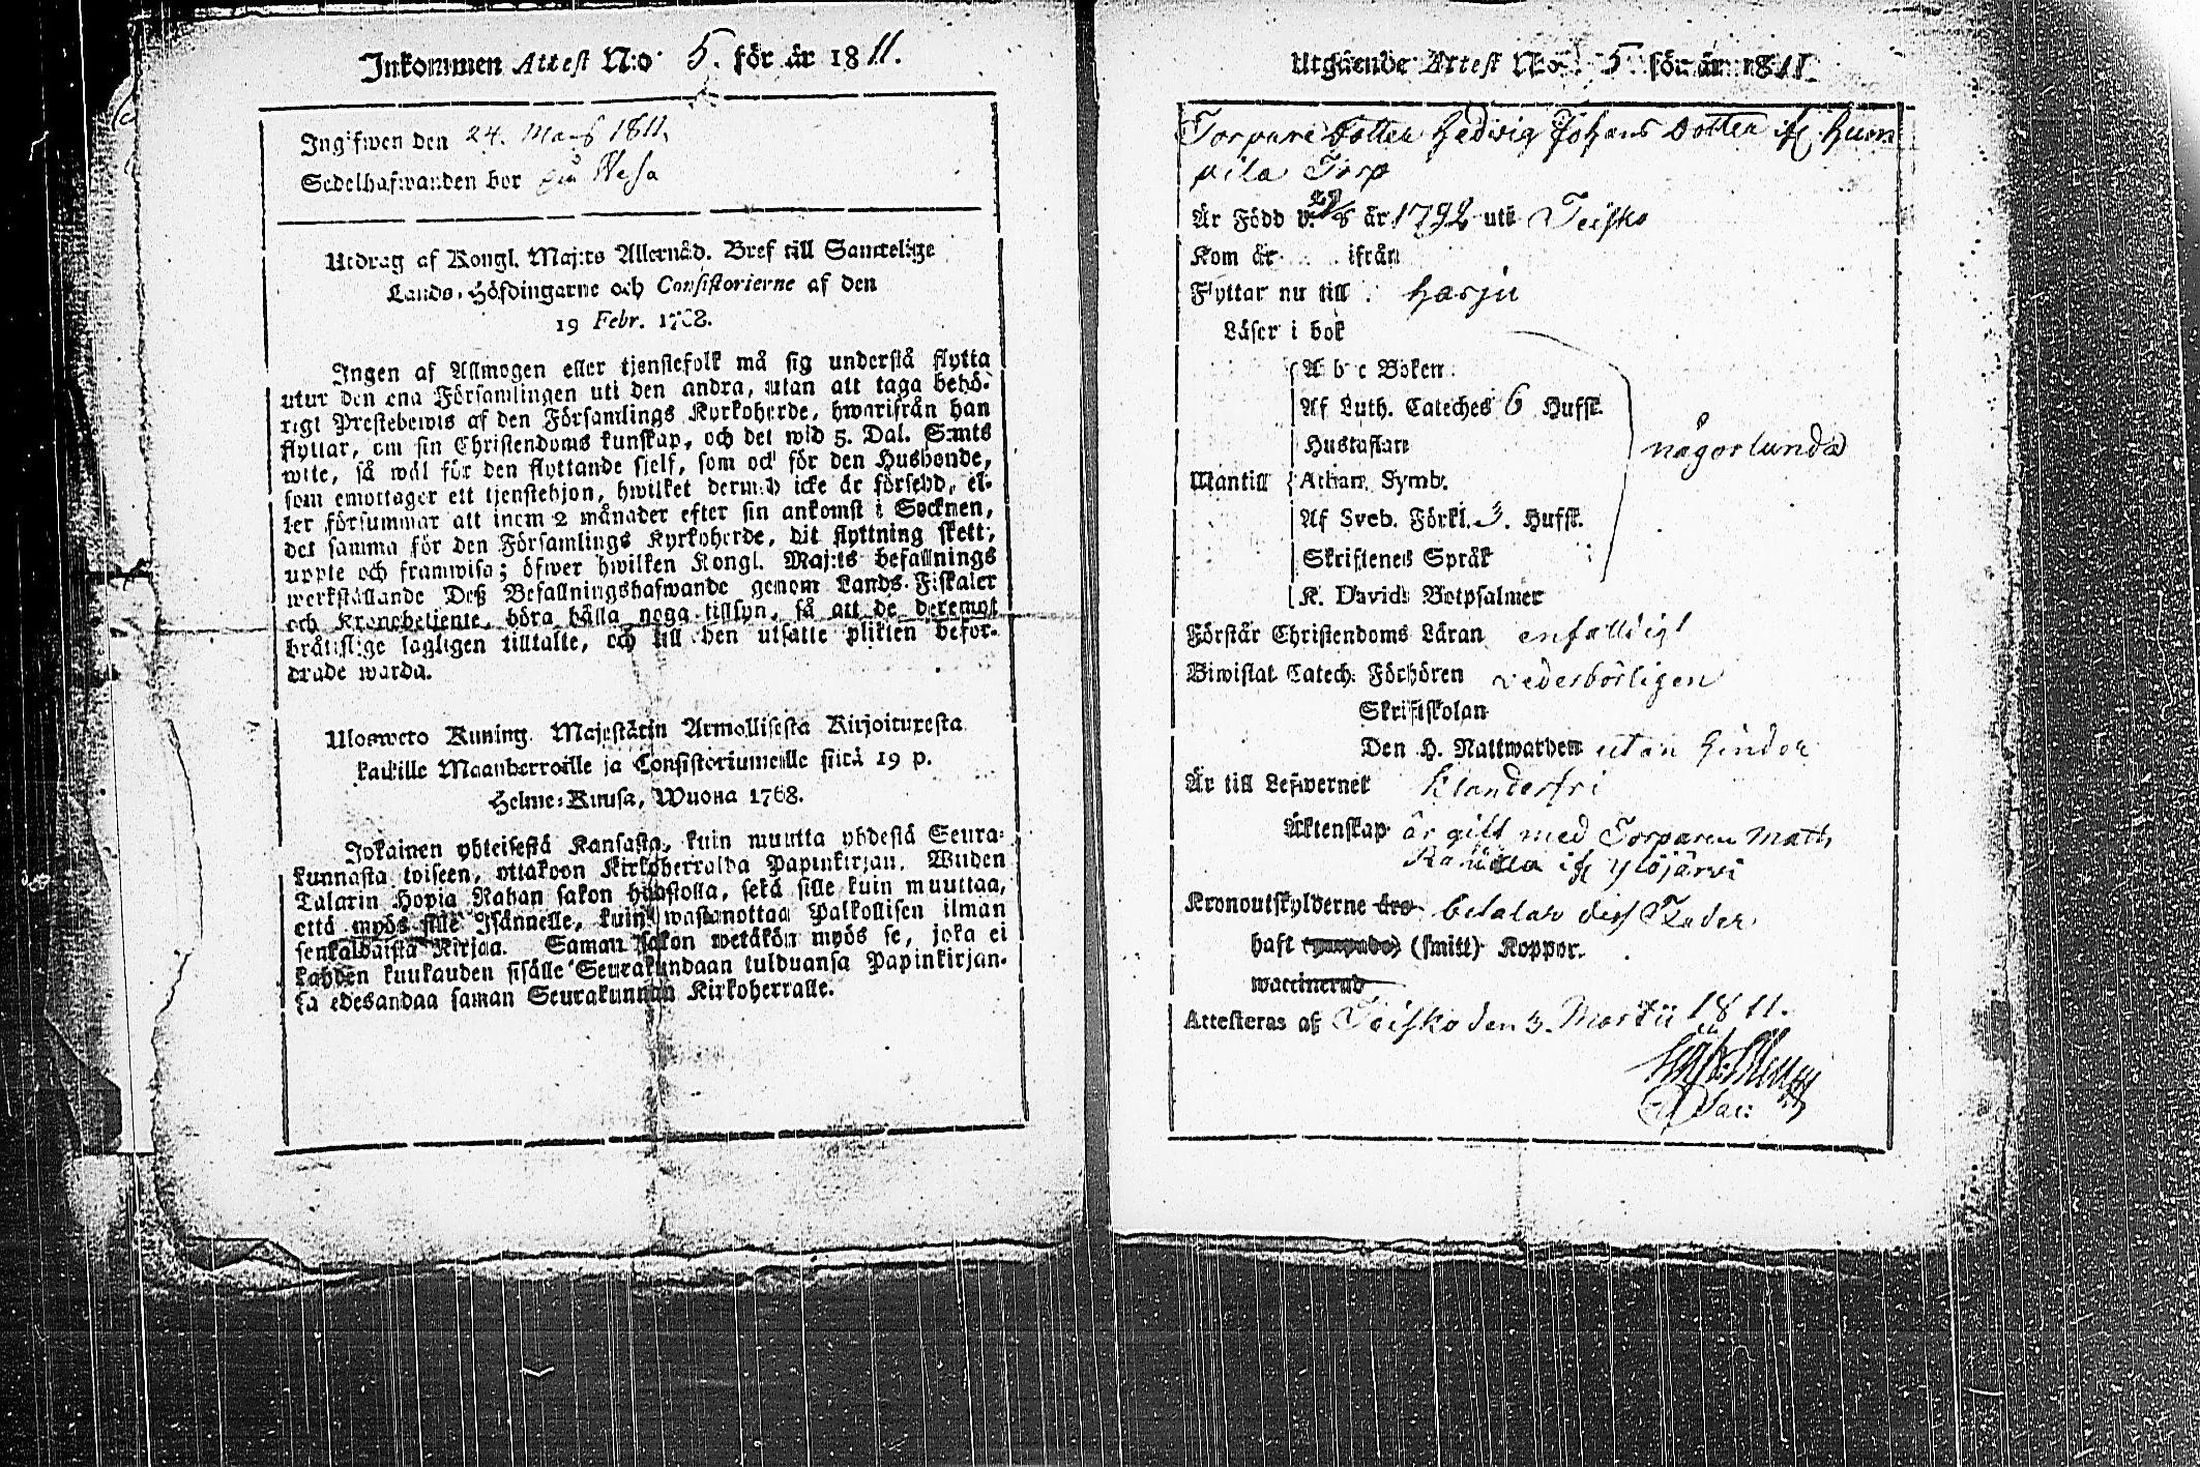 Inkommen Attest N:o 5. för år 1811.
Ingifwen den 24. Mars 1811.
Sedelhafwanden bor på Wesa
Utdrag af Kongl. Maj:ts Allernåd. Bref till Samtelige
Lands-Höfdingarne och Consistorierne af den
19 Febr. 1768.
Ingen af Allmogen eller tjenstefolk må sig understå flytta
utur den ena Församlingen uti den andra, utan att taga behö-
rigt Prestebewis af den Församlings Kyrkoherde, hwarifrån han
flyttar, om sin Christendoms kunskap, och det wid 5. Dal. S:mts
wite, så wäl för den flyttande sjelf, som ock för den Husbonde,
som emottager ett tjenstehjon, hwilket dermed icke är försedd, el-
ler försummar att inom 2 månader efter sin ankomst i Socknen,
det samma för den Församlings Kyrkoherde, dit flyttning skett,
uppte och framwisa; öfwer hwilken Kongl. Maj:ts befallnings
werkställande Deß Befallningshafwande genom Lands-Fiskaler
och Kronobetjente, böra hålla noga tillsyn, så att de deremot
bråttslige lagligen tilltalte, och till den utsatte plikten befor-
drade warda.
Ulosweto Kuning. Majestätin Armollisesta Kirjoituxesta
kaikille Maanherroille ja Consistoriumeille siitä 19 p.
Helme-Kuusa, Wuona 1768.
Jokainen yhteisestä Kansasta, kuin muutta yhdestä Seura-
kunnasta toiseen, ottakoon Kirkoherralda Papinkirjan. Wiiden
Talarin Hopia Rahan sakon haastolla, sekä sille kuin muuttaa,
että myös sille Isännelle, kuin wastanottaa Palkollisen ilman
senkaldaista Kirjaa. Saman sakon wetäkön myös se, joka ei
kahden kuukauden sisälle Seurakundaan tulduansa Papinkirjan-
sa edesandaa saman Seurakunnan Kirkoherralle.
Utgående Attest N:o 5 för år 1811.
Torpare Dotter Hedvig Johans Dotter ifr
pila Torp
Är Född d. 29/8 år 1792 uti Teisko
Kom år ifrån
Flyttar nu till Harju
Läser i bok
A b c Boken
Af Luth. Cateches 6 Hufst.
Hustaflan
någorlunda
Mantill Athan. Symb.
Af Sveb. Förkl. 3. Hufst.
Skriftenes Språk
K. Davids Botpsalmer
Förstår Christendoms Läran enfalldigt
Biwistat Catech. Förhören vederbörligen
Skriftskolan
Den H. Nattwarden utan hinder
Är till Lefwernet Klanderfri
Äktenskap är gift med Torparen Math,
ifr Ylöjärvi
Kronoutskylderne äro betalar dess Fader
haft (smitt) Koppor.
waccinerad
Attesteras af Teisko den 3. Martii 1811.